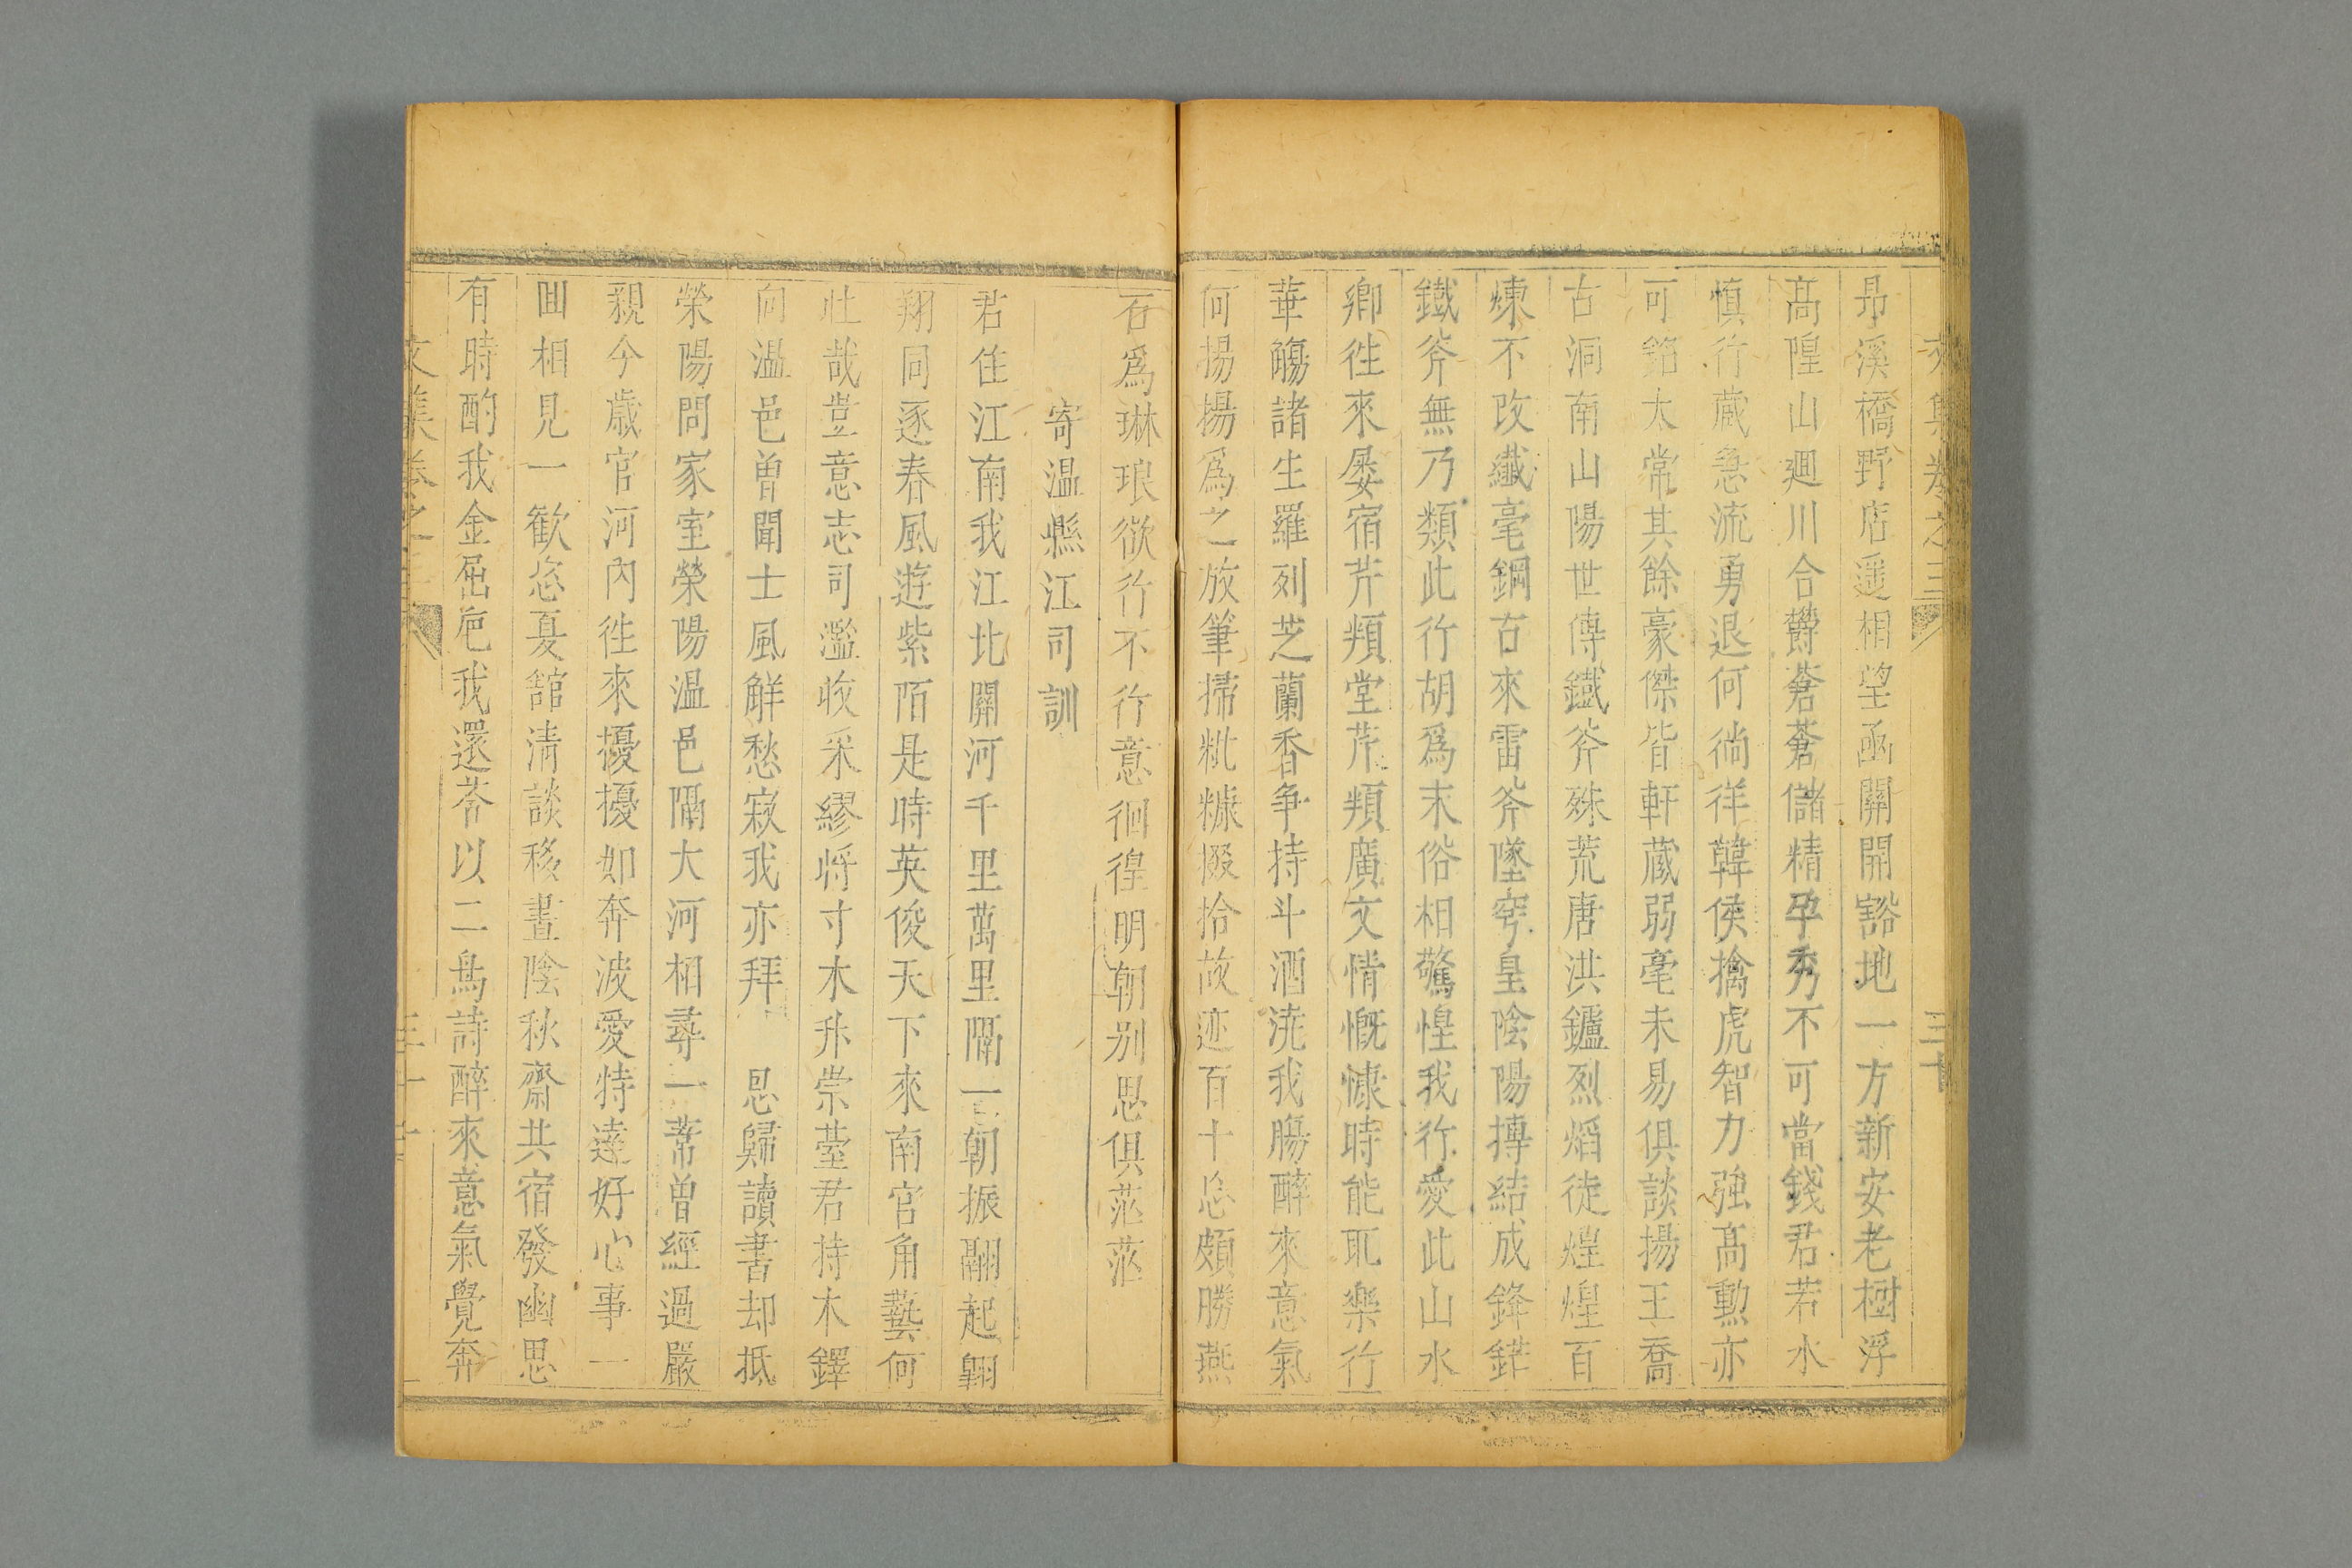 文集卷之三 三十
昂溪橋野店遥相望函關開豁地一方新安老樹浮
髙隍山迴川合欝蒼蒼儲精孕秀不可當錢君若水
慎行蔵急流勇退何徜徉韓侯擒虎智力強髙勲亦
可銘太常其餘豪傑皆軒蔵弱毫未易俱談揚王喬
古洞南山陽世傳鐡斧殊荒唐洪鑪烈熖徒煌煌百
煉不改纖毫鋼古來雷斧墜穹皇陰陽摶結成鋒鋩
鐡斧無乃類此行胡爲末俗相驚惶我行愛此山水
鄉徃來屡宿芹頖堂芹頖廣文情慨慷時能耴樂行
華觴諸生羅列芝蘭香争持斗酒澆我腸醉來意氣
何揚揚爲之放筆掃粃糠掇拾故迹百十忘頗勝燕
石爲琳琅欲行不行意徊徨明朝别思俱茫茫
寄温縣江司訓
君住江南我江北關河千里萬里隔一朝振翮起翺
翔同逐春風遊紫陌是時英俊天下來南宫角藝何
壯哉豈意志司濫收采繆将寸木升崇䑓君持木鐸
向溫邑曽聞士風鮮愁寂我亦拜 恩歸讀書却抵
榮陽問家室榮陽温邑隔大河相尋一葦曽經過嚴
親今歲官河內徃來擾擾如奔波愛特達好心事一
囬相見一歓恣夏舘清談移晝陰秋齋共宿發幽思
有時酌我金屈巵我還荅以二鳥詩醉來意氣覺奔
文集卷之三 三十一